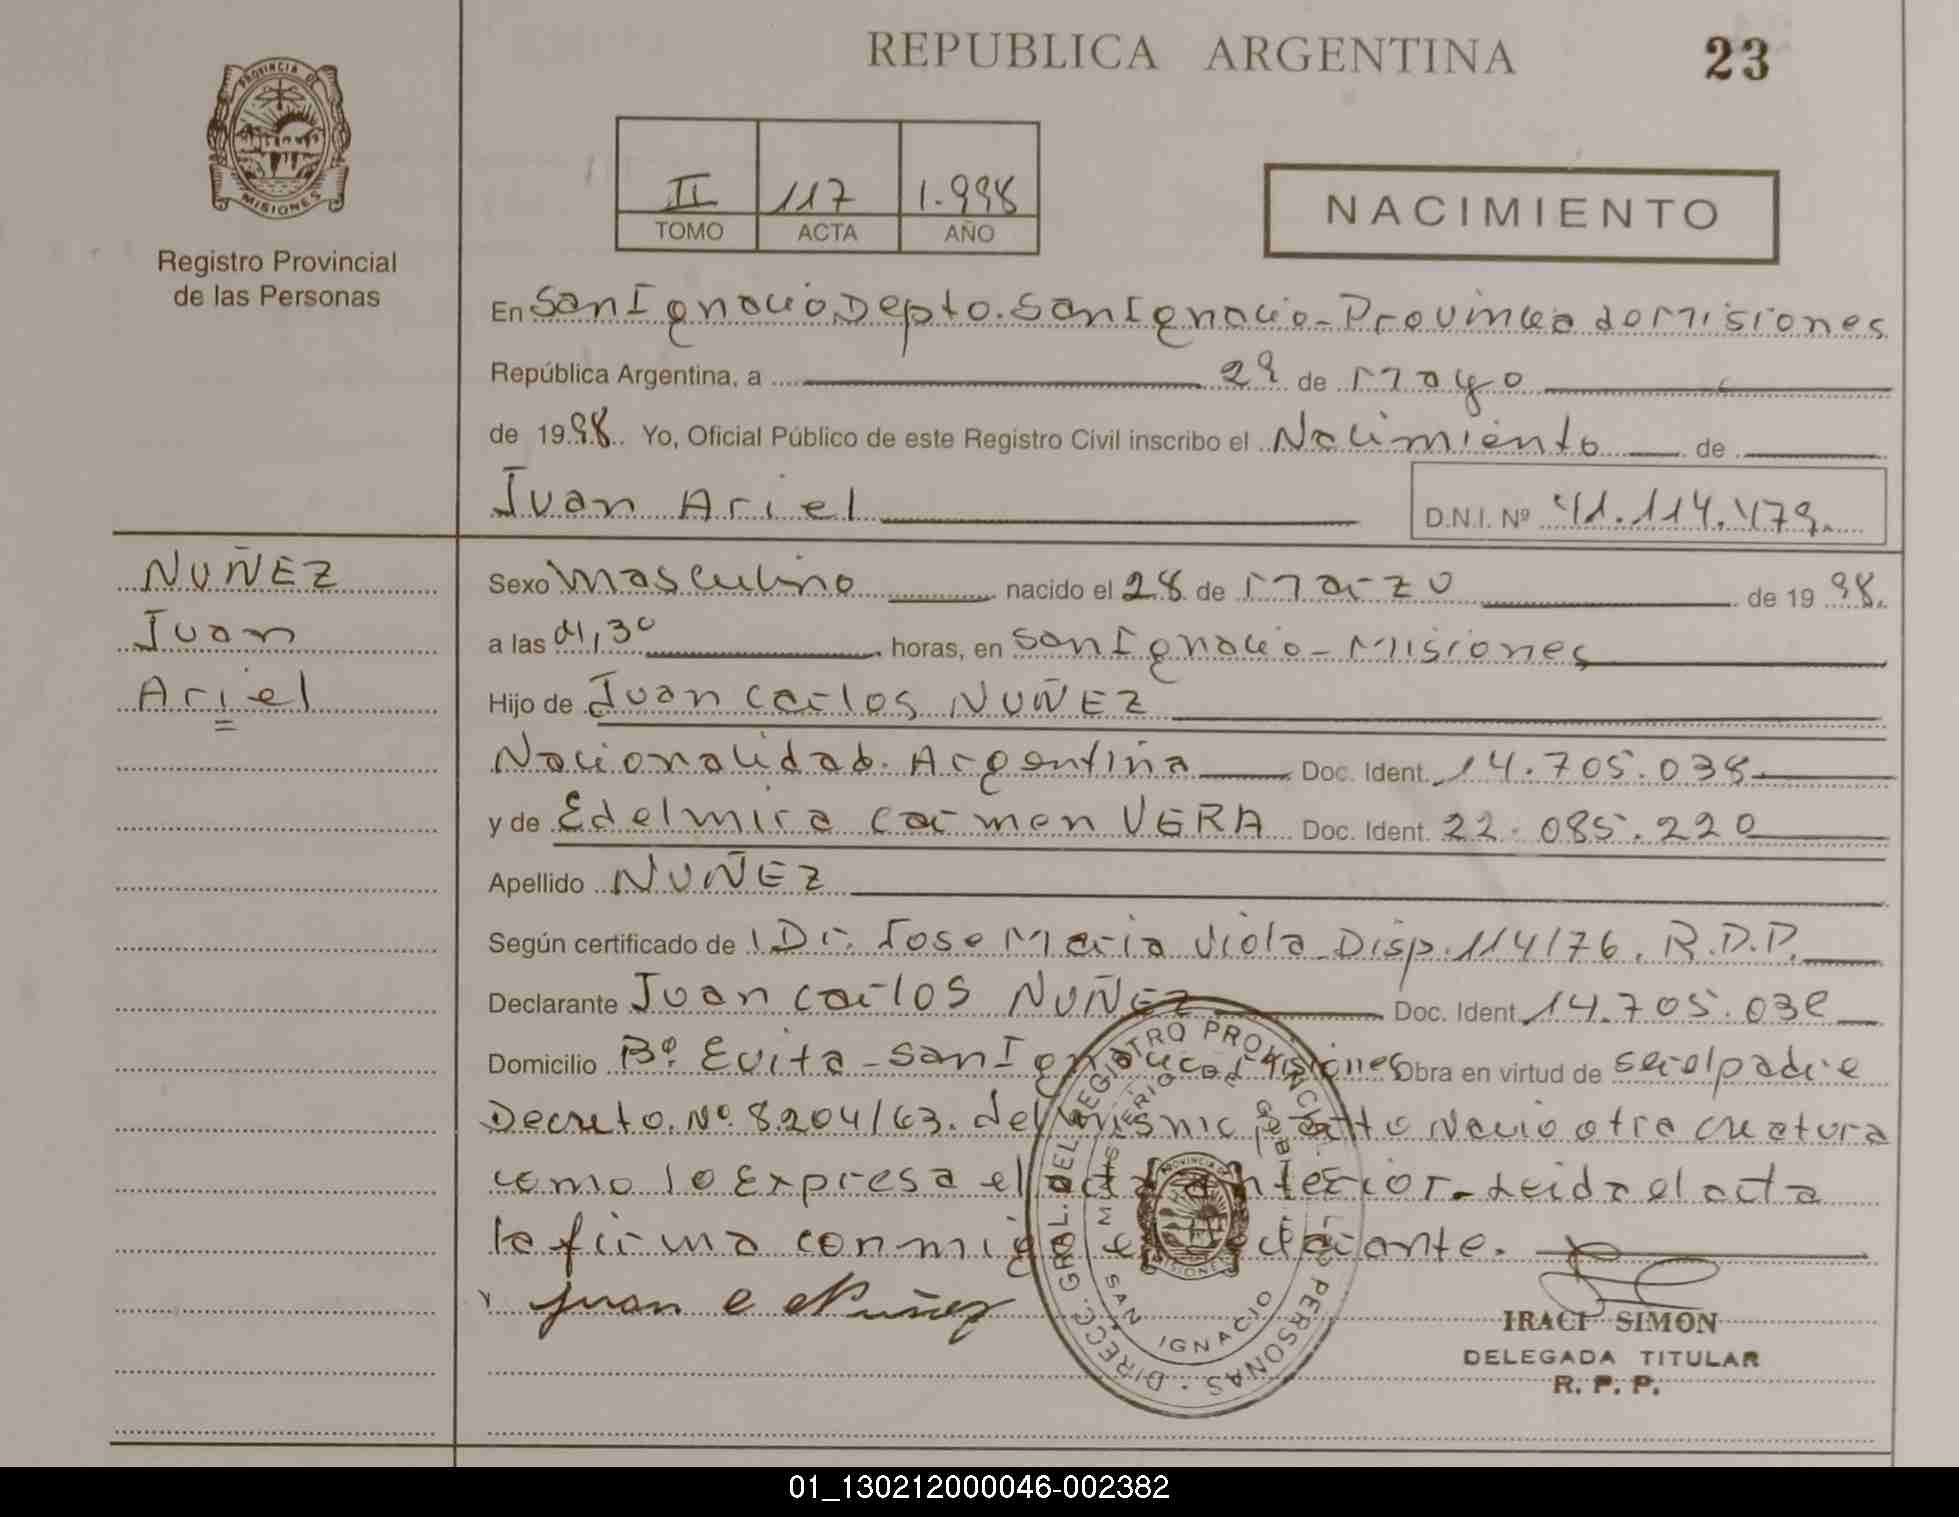 REPUBLICA ARGENTINA
23
PROVINCIA DE
MISIONES
Registro Provincial
de las Personas
II 117 1.998
TOMO ACTA AÑO
NACIMIENTO
En San Ignacio Depto. San Ignacio - Provincia de Misiones
República Argentina, a 29 de Mayo
de 1998. Yo, Oficial Público de este Registro Civil inscribo el Nacimiento de
Juan Ariel
D.N.I. Nº 41.114.479.
NUÑEZ
Juan
Ariel
Sexo Masculino nacido el 28 de Marzo de 1998.
a las 01,30 horas, en San Ignacio - Misiones
Hijo de Juan Carlos NUÑEZ
Nacionalidad. Argentina Doc. Ident. 14.705.038
y de Edelmira Carmen VERA Doc. Ident. 22.085.220
Apellido NUÑEZ
Según certificado de Dr. Jose Maria Viola Disp. 114/76. R.D.P.
Declarante Juan Carlos NUÑEZ Doc. Ident. 14.705.038
Domicilio Bº. Evita - San Ignacio Misiones Obra en virtud de ser el padre
Decreto. Nº. 8204/63. del mismo parto nacio otra creatura
como lo expresa el acta anterior. Leida el acta
la firma conmigo el declarante.
Juan C Nuñez
DIRECC. GRAL. DEL REGISTRO PROVINCIAL DE LAS PERSONAS
MINISTERIO DE
SAN IGNACIO
PROVINCIA DE
MISIONES
IRACI SIMON
DELEGADA TITULAR
R. P. P.
01_130212000046-002382